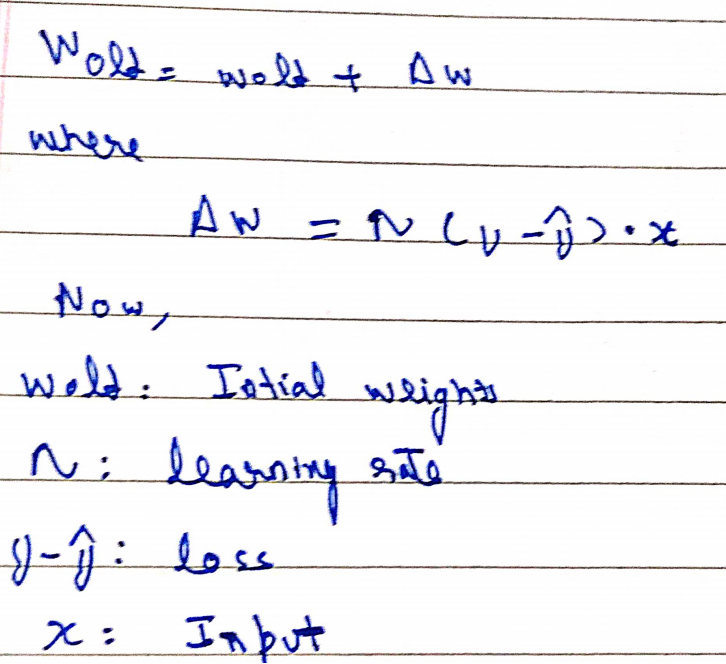 Wold = wold + Δw
where
Δw = η (y - ŷ) · x
Now,
wold : Intial weights
η : learning rate
y - ŷ : loss
x : Input